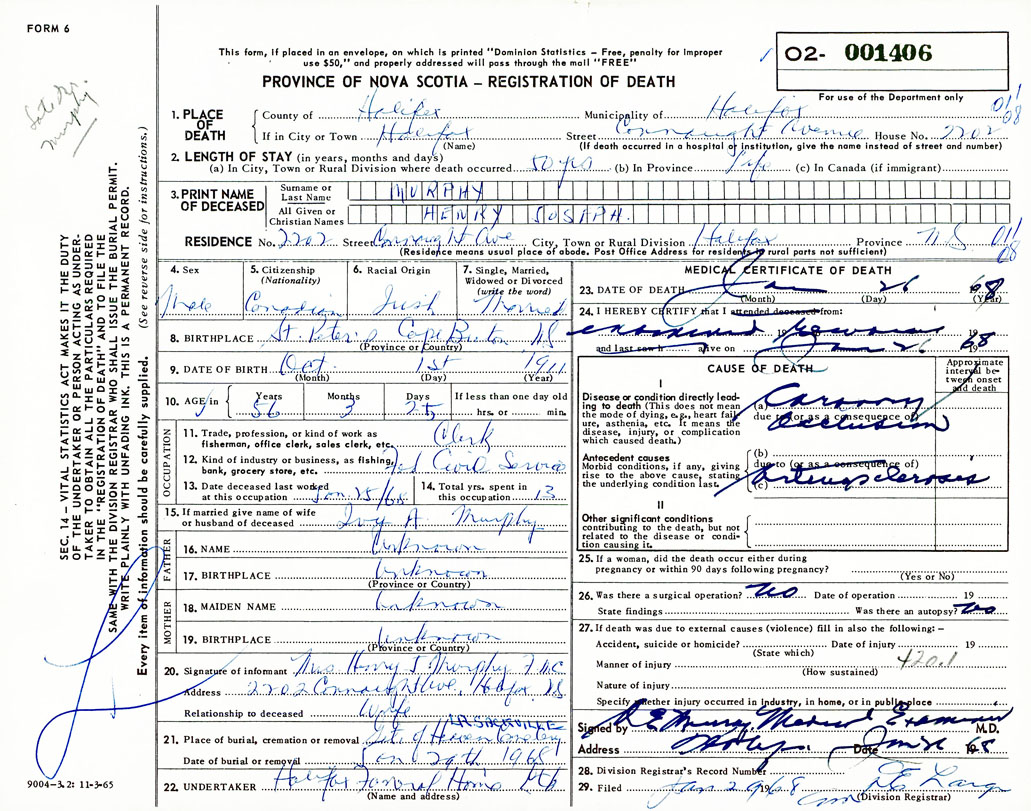 FORM 6
This form, if placed in an envelope, on which is printed "Dominion Statistics – Free, penalty for improper
use $50," and properly addressed will pass through the mail "FREE"
02- 001406
PROVINCE OF NOVA SCOTIA – REGISTRATION OF DEATH
For use of the Department only
SEC. 14 – VITAL STATISTICS ACT MAKES IT THE DUTY
OF THE UNDERTAKER OR PERSON ACTING AS UNDER-
TAKER TO OBTAIN ALL THE PARTICULARS REQUIRED
IN THE "REGISTRATION OF DEATH" AND TO FILE THE
SAME WITH THE DIVISION REGISTRAR WHO SHALL ISSUE THE BURIAL PERMIT.
WRITE PLAINLY WITH UNFADING INK. THIS IS A PERMANENT RECORD.
Every item of information should be carefully supplied. (See reverse side for instructions.)
1. PLACE OF DEATH
County of Halifax Municipality of Halifax
If in City or Town Halifax Street Connaught Avenue House No. 2202
(Name) (If death occurred in a hospital or institution, give the name instead of street and number)
2. LENGTH OF STAY (in years, months and days)
(a) In City, Town or Rural Division where death occurred 50 yrs (b) In Province Life (c) In Canada (if immigrant)
3. PRINT NAME OF DECEASED
Surname or Last Name MURPHY
All Given or Christian Names HENRY JOSEPH.
RESIDENCE No. 2202 Street Connaught Ave City, Town or Rural Division Halifax Province N.S.
(Residence means usual place of abode. Post Office Address for residents in rural parts not sufficient)
4. Sex Male
5. Citizenship (Nationality) Canadian
6. Racial Origin Irish
7. Single, Married, Widowed or Divorced (write the word) Married
8. BIRTHPLACE St. Peter's Cape Breton NS
(Province or Country)
9. DATE OF BIRTH Oct. 1st 1911
(Month) (Day) (Year)
10. AGE in Years 56 Months 3 Days 25 If less than one day old
hrs. or min.
OCCUPATION
11. Trade, profession, or kind of work as
fisherman, office clerk, sales clerk, etc. Clerk
12. Kind of industry or business, as fishing,
bank, grocery store, etc. Fed Civil Service
13. Date deceased last worked
at this occupation Jan. 25/68
14. Total yrs. spent in
this occupation 13
15. If married give name of wife
or husband of deceased Ivy A Murphy
FATHER
16. NAME Unknown
17. BIRTHPLACE Unknown
(Province or Country)
MOTHER
18. MAIDEN NAME Unknown
19. BIRTHPLACE Unknown
(Province or Country)
20. Signature of informant Mrs. Henry J Murphy
Address 2202 Connaught Ave, Halifax NS
Relationship to deceased Wife
21. Place of burial, cremation or removal Gate of Heaven Cemetery
LR. SACKVILLE
Date of burial or removal Jan 29th 1968
22. UNDERTAKER Halifax Funeral Home Ltd
(Name and address)
9004-3.2: 11-3-65
MEDICAL CERTIFICATE OF DEATH
23. DATE OF DEATH Jan 26 1968
(Month) (Day) (Year)
24. I HEREBY CERTIFY that I attended deceased from:
examined 19
and last saw h alive on Jan 26 1968
CAUSE OF DEATH
Approximate interval between onset and death
I
Disease or condition directly lead-
ing to death (This does not mean
the mode of dying, e.g., heart fail-
ure, asthenia, etc. It means the
disease, injury, or complication
which caused death.)
(a) Coronary
due to (or as a consequence of)
Occlusion
Antecedent causes
Morbid conditions, if any, giving
rise to the above cause, stating
the underlying condition last.
(b)
due to (or as a consequence of)
(c) Arteriosclerosis
II
Other significant conditions
contributing to the death, but not
related to the disease or condi-
tion causing it.
25. If a woman, did the death occur either during
pregnancy or within 90 days following pregnancy?
(Yes or No)
26. Was there a surgical operation? No Date of operation 19
State findings Was there an autopsy? No
27. If death was due to external causes (violence) fill in also the following: –
Accident, suicide or homicide? Date of injury 19
(State which)
Manner of injury 420.1
(How sustained)
Nature of injury
Specify whether injury occurred in industry, in home, or in public place
Signed by R E Murray Medical Examiner M.D.
Address Date Jan 26 1968
28. Division Registrar's Record Number
29. Filed Jan 29 1968
(Division Registrar)